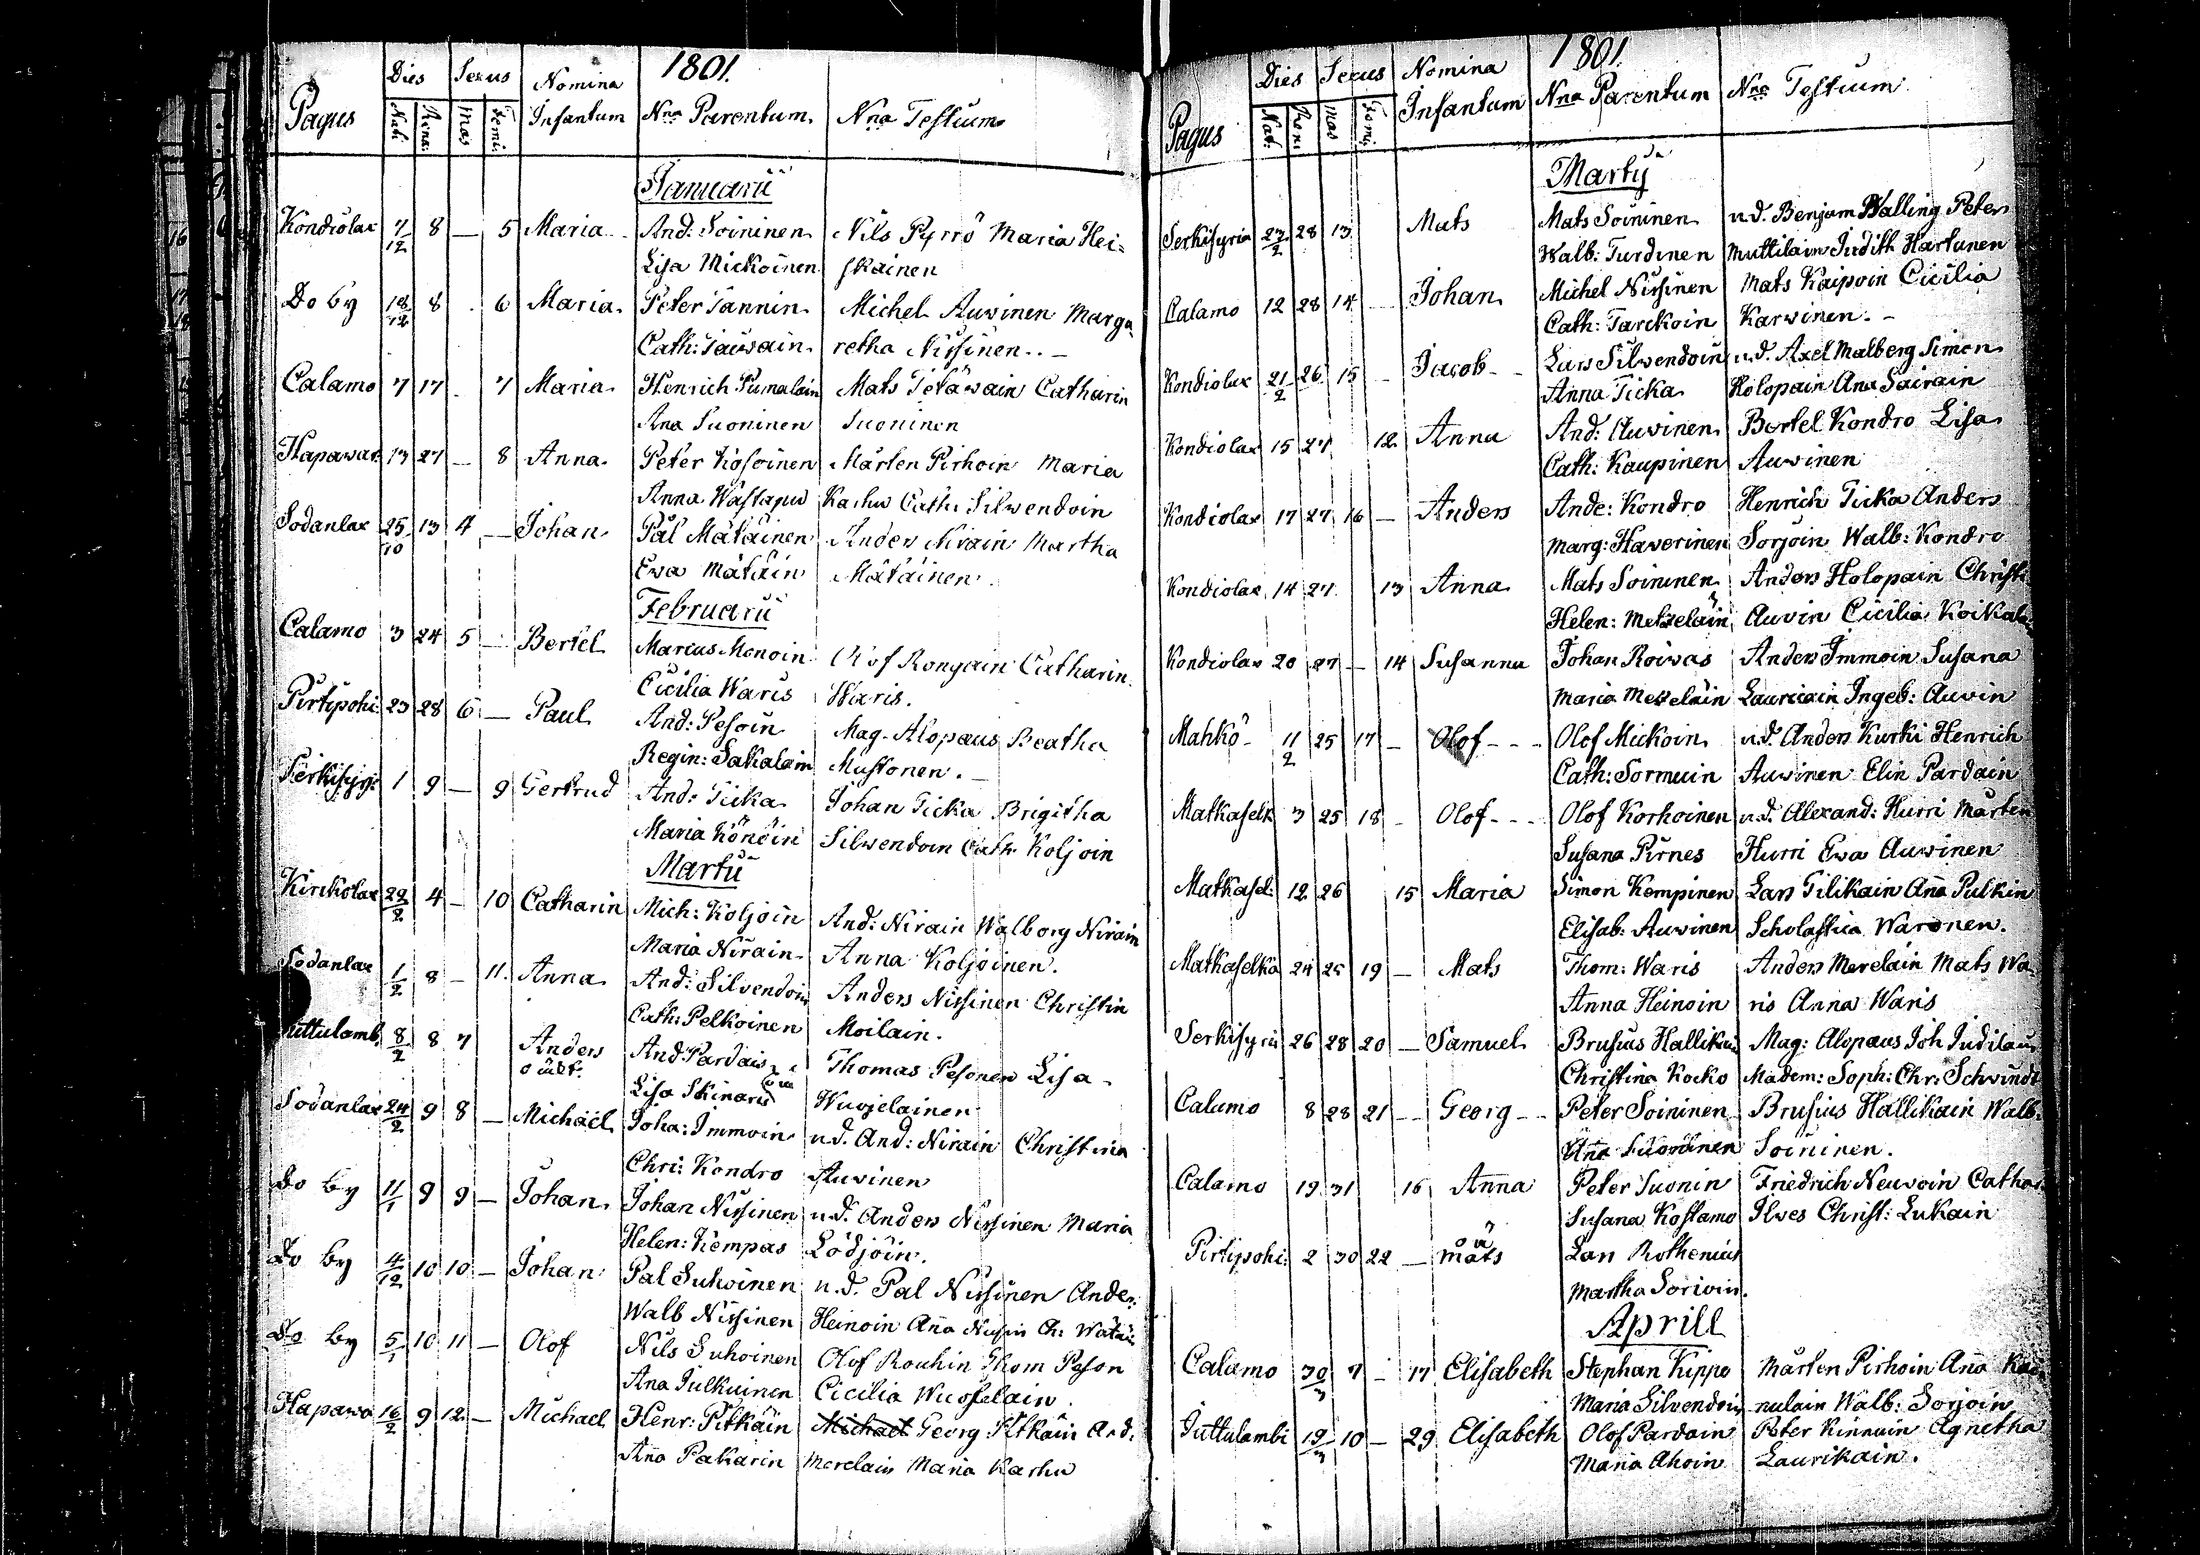 1801.
Pagus Dies Sexus Nomina Infantum Nna Parentum Nna Testium
Nat: Rena: Mas Femi:
Januarii
Kondiolax 7/12 8 — 5 Maria And: Soininen Nils Pyrrö Maria Hei=
Lisa Mickoinen skainen
Do by 18/12 8 6 Maria Peter Tannin Michel Auvinen Marga
Cath: retha Nissinen. . —
Calamo 7 17 7 Maria Henrich Mats Catharin
Ana Suoninen Suoninen
Hapawar 13 27 — 8 Anna Peter Kosoinen Mårten Pirhoin Maria
Anna Karhu Cath: Silwendoin
Sodanlax 25/10 13 4 — Johan Pål Mätäinen Anders Nirain Martha
Ewa Mätäin Mätäinen.
Februarii
Calamo 3 24 5 — Bertel Marcus Monoin Olof Rongain Catharin
Cicilia Waris Waris.
Pirtipohi 23 28 6 — Paul And: Pesoin Mag. Alopæus Beatha
Regin: Sakalain Mustonen. —
Serkisyr: 1 9 — 9 Gertrud And: Ticka Johan Ticka Brigitha
Maria Könöin Silwendoin Cath: Koljoin
Martii
Kirckolax 22/2 4 — 10 Catharin Mich: Koljoin And: Nirain Walborg Nirain
Maria Nirain Anna Koljoinen.
Sodanlax 1/2 8 — 11. Anna And: Silvendoin Anders Nissinen Christin
Cath: Pelkoinen Moilain.
uttulamb. 8/2 8 7 Anders And: Pardain Thomas Pesonen Lisa
o äckt. Lisa Skinari Wuojelainen
Sodanlax 24/2 9 8 — Michaël Joha: Immoin u.d. And: Nirain Christina
Chri: Kondro Auvinen
Do by 11/1 9 9 — Johan Johan Nissinen u.d. Anders Nissinen Maria
Helen: Kempas Lödjöin.
Do by 4/12 10 10 — Johan Pal Suhoinen u.d. Pal Nissinen Ander:
Walb Nissinen Heinoin Aña
Do by 5/1 10 11 — Olof Nils Suhoinen Olof Rouhin Thom Peson
Ana Julkuinen Cicilia
Hapawa 16/2 9 12 — Michael Henr: Pitkäin Michael Georg Pitkäin And.
Aña Pakarin Merelain Maria Karhu
1801.
Pagus Dies Sexus Nomina Infantum Nna Parentum Nna Testium
Nat: Rena Mas Femi
Martij
Serkisyria 23/2 28 13 Mats Mats Soininen u.d. Benjam Walling Peter
Walb: Turdinen Muttilain Judith Hartunen
Calamo 12 28 14 — Johan Michel Nissinen Mats Kaipoin Cicilia
Cath: Tarckoin Karwinen. —
Kondiolax 21/2 26 15 — Jacob Lars Silwendoin u.d. Axel Malberg Simon
Anna Ticka Holopain Ana Sairain
Kondiolax 15 27 12 Anna And: Auvinen Bertel Kondro Lisa
Cath: Kaupinen Auvinen
Kondiolax 17 27 16 — Anders Ande: Kondro Henrich Ticka Anders
Marg: Haverinen Sorjoin Walb: Kondro
Kondiolax 14 27 13 Anna Mats Soininen Anders Holopain Christi
Helen: Metzeläin Auvin Cicilia
Kondiolax 20 27 — 14 Susanna Johan Roivas Anders Immoin Susana
Maria Metzeläin Lauricain Ingeb: Auvin
Mahkö 11/2 25 17 — Olof Olof Mickoin u.d. Anders Kurki Henrich
Cath: Sormuin Auvinen Elin Pardain
Matkaselk 3 25 18 — Olof Olof Korhoinen u.d. Alexand: Hurri Mårten
Susana Pirnes Hurri Ewa Auvinen
Matkasel: 12 26 15 Maria Simon Kempinen Lars Tilikain Aña Pulkin
Elisab: Auvinen Scholastica Waronen.
Matkaselkä 24 25 19 — Mats Thom: Waris Anders Merelain Mats Wa=
Anna Heinoin ris Anna Waris
Serkisyri 26 28 20 — Samuel Brusius Hallikain Mag: Alopæus Joh
Christina Kocko Madem: Soph: Chr: Schvindt
Calamo 8 28 21 — Georg Peter Soininen Brusius Hallikain Walb.
Aña Soininen.
Calamo 19 31 16 Anna Peter Suonin Friedrich Neuvoin Cathar
Susana Kostamo Ilves Christ: Lukain
Pirtipohi: 2 30 22 — Mats Lars Rothenius
Martha Sorivin.
Aprill
Calamo 30/3 7 — 17 Elisabeth Stephan Kippo Mårten Pirhoin Aña
Maria Silvendoin nulain Walb: Sorjoin
Juttulambi 19/3 10 — 29 Elisabeth Olof Pardain Peter Kinnuin Agnetha
Maria Ahoin Laurikain.